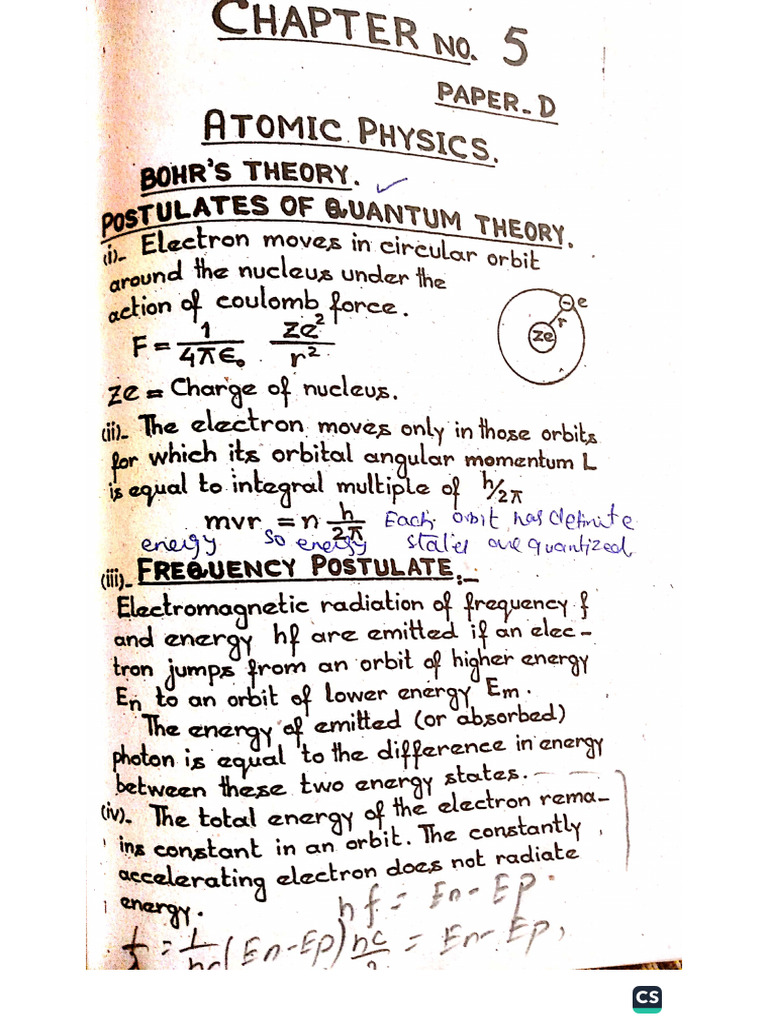 CHAPTER NO. 5
PAPER-D
ATOMIC PHYSICS.
BOHR'S THEORY.
POSTULATES OF QUANTUM THEORY.
(i)- Electron moves in circular orbit
around the nucleus under the
action of coulomb force.
F = 1/4πε₀ Ze²/r²
e
r
Ze
Ze = Charge of nucleus.
(ii)- The electron moves only in those orbits
for which its orbital angular momentum L
is equal to integral multiple of h/2π
mvr = n h/2π Each orbit has definite
energy so energy states are quantized
(iii)- FREQUENCY POSTULATE:-
Electromagnetic radiation of frequency f
and energy hf are emitted if an elec-
tron jumps from an orbit of higher energy
En to an orbit of lower energy Em.
The energy of emitted (or absorbed)
photon is equal to the difference in energy
between these two energy states.
(iv)- The total energy of the electron rema-
ins constant in an orbit. The constantly
accelerating electron does not radiate
energy.
hf = En - Ep.
1/λ = 1/hc (En - Ep) hc/λ = En - Ep,
CS